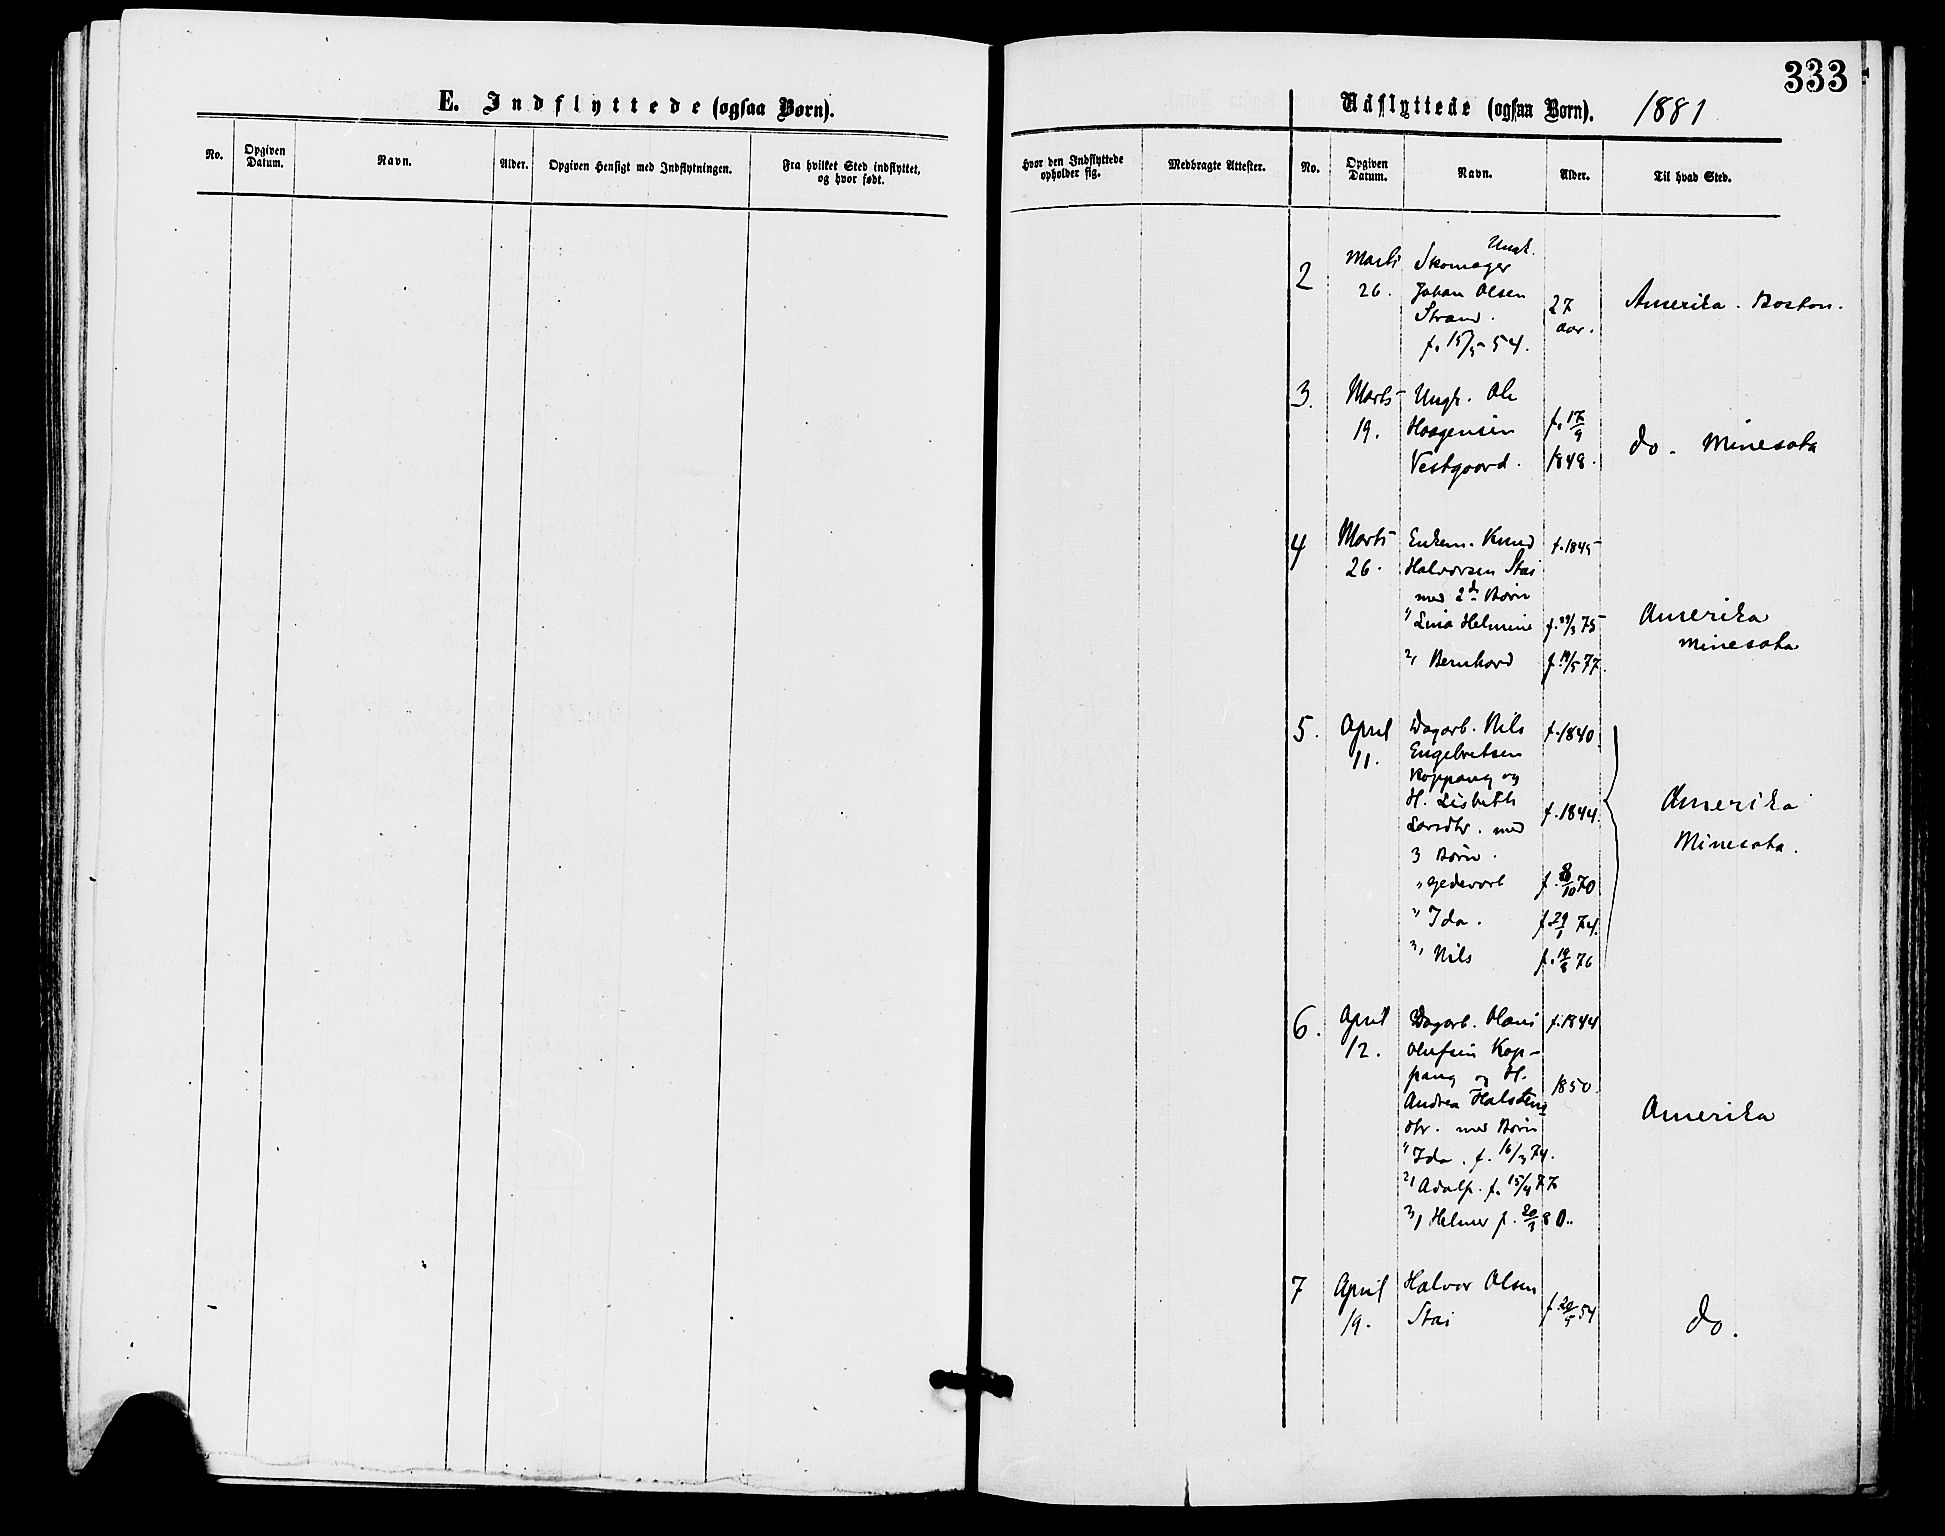 333
E. Indflyttede (ogsaa Børn).
No.
Opgiven
Datum.
Navn.
Alder.
Opgiven Hensigt med Indflytningen.
Fra hvilket Sted indflyttet,
og hvor født.
Udflyttede (ogsaa Børn). 1881
Hvor den Indflyttede
opholder sig.
Medbragte Attester.
No.
Opgiven
Datum.
Navn.
Alder.
Til hvad Sted.
2
Marts
26.
Ungk.
Skomager
Johan Olsen
Strand.
f. 15/5 54.
27
aar.
Amerika. Boston.
3.
Marts
19.
Ungk. Ole
Haagensen
Vestgaard.
f. 17/9
1848.
do. Minesota
4
Marts
26.
Enkem. Knud
Halvorsen Stai
med 2de Børn
Lina Helmine
2, Bernhard
f. 1845
75
f. 19/5 77.
Amerika
Minesota
5.
April
11.
Dagarb. Nils
Engebretsen
Koppang og
H. Lisbeth
Larsdtr. med
3 Børn.
" Ida.
3, Nils
f. 1840.
f. 1844.
70
f 29/1 74.
f. 19/8 76
Amerika
Minesota.
6.
April
12.
Dagarb.
Olufsen Kop-
pang og H.
Andrea Halstens
dtr. med Børn
" Ida. f. 16/3 74.
2, Adolf. f. 15/4 77
3, Helmer f. 20/3 80.
f. 1844
1850.
Amerika
7
April
19.
Halvor Olsen
Stai
f 20/5 54
do.